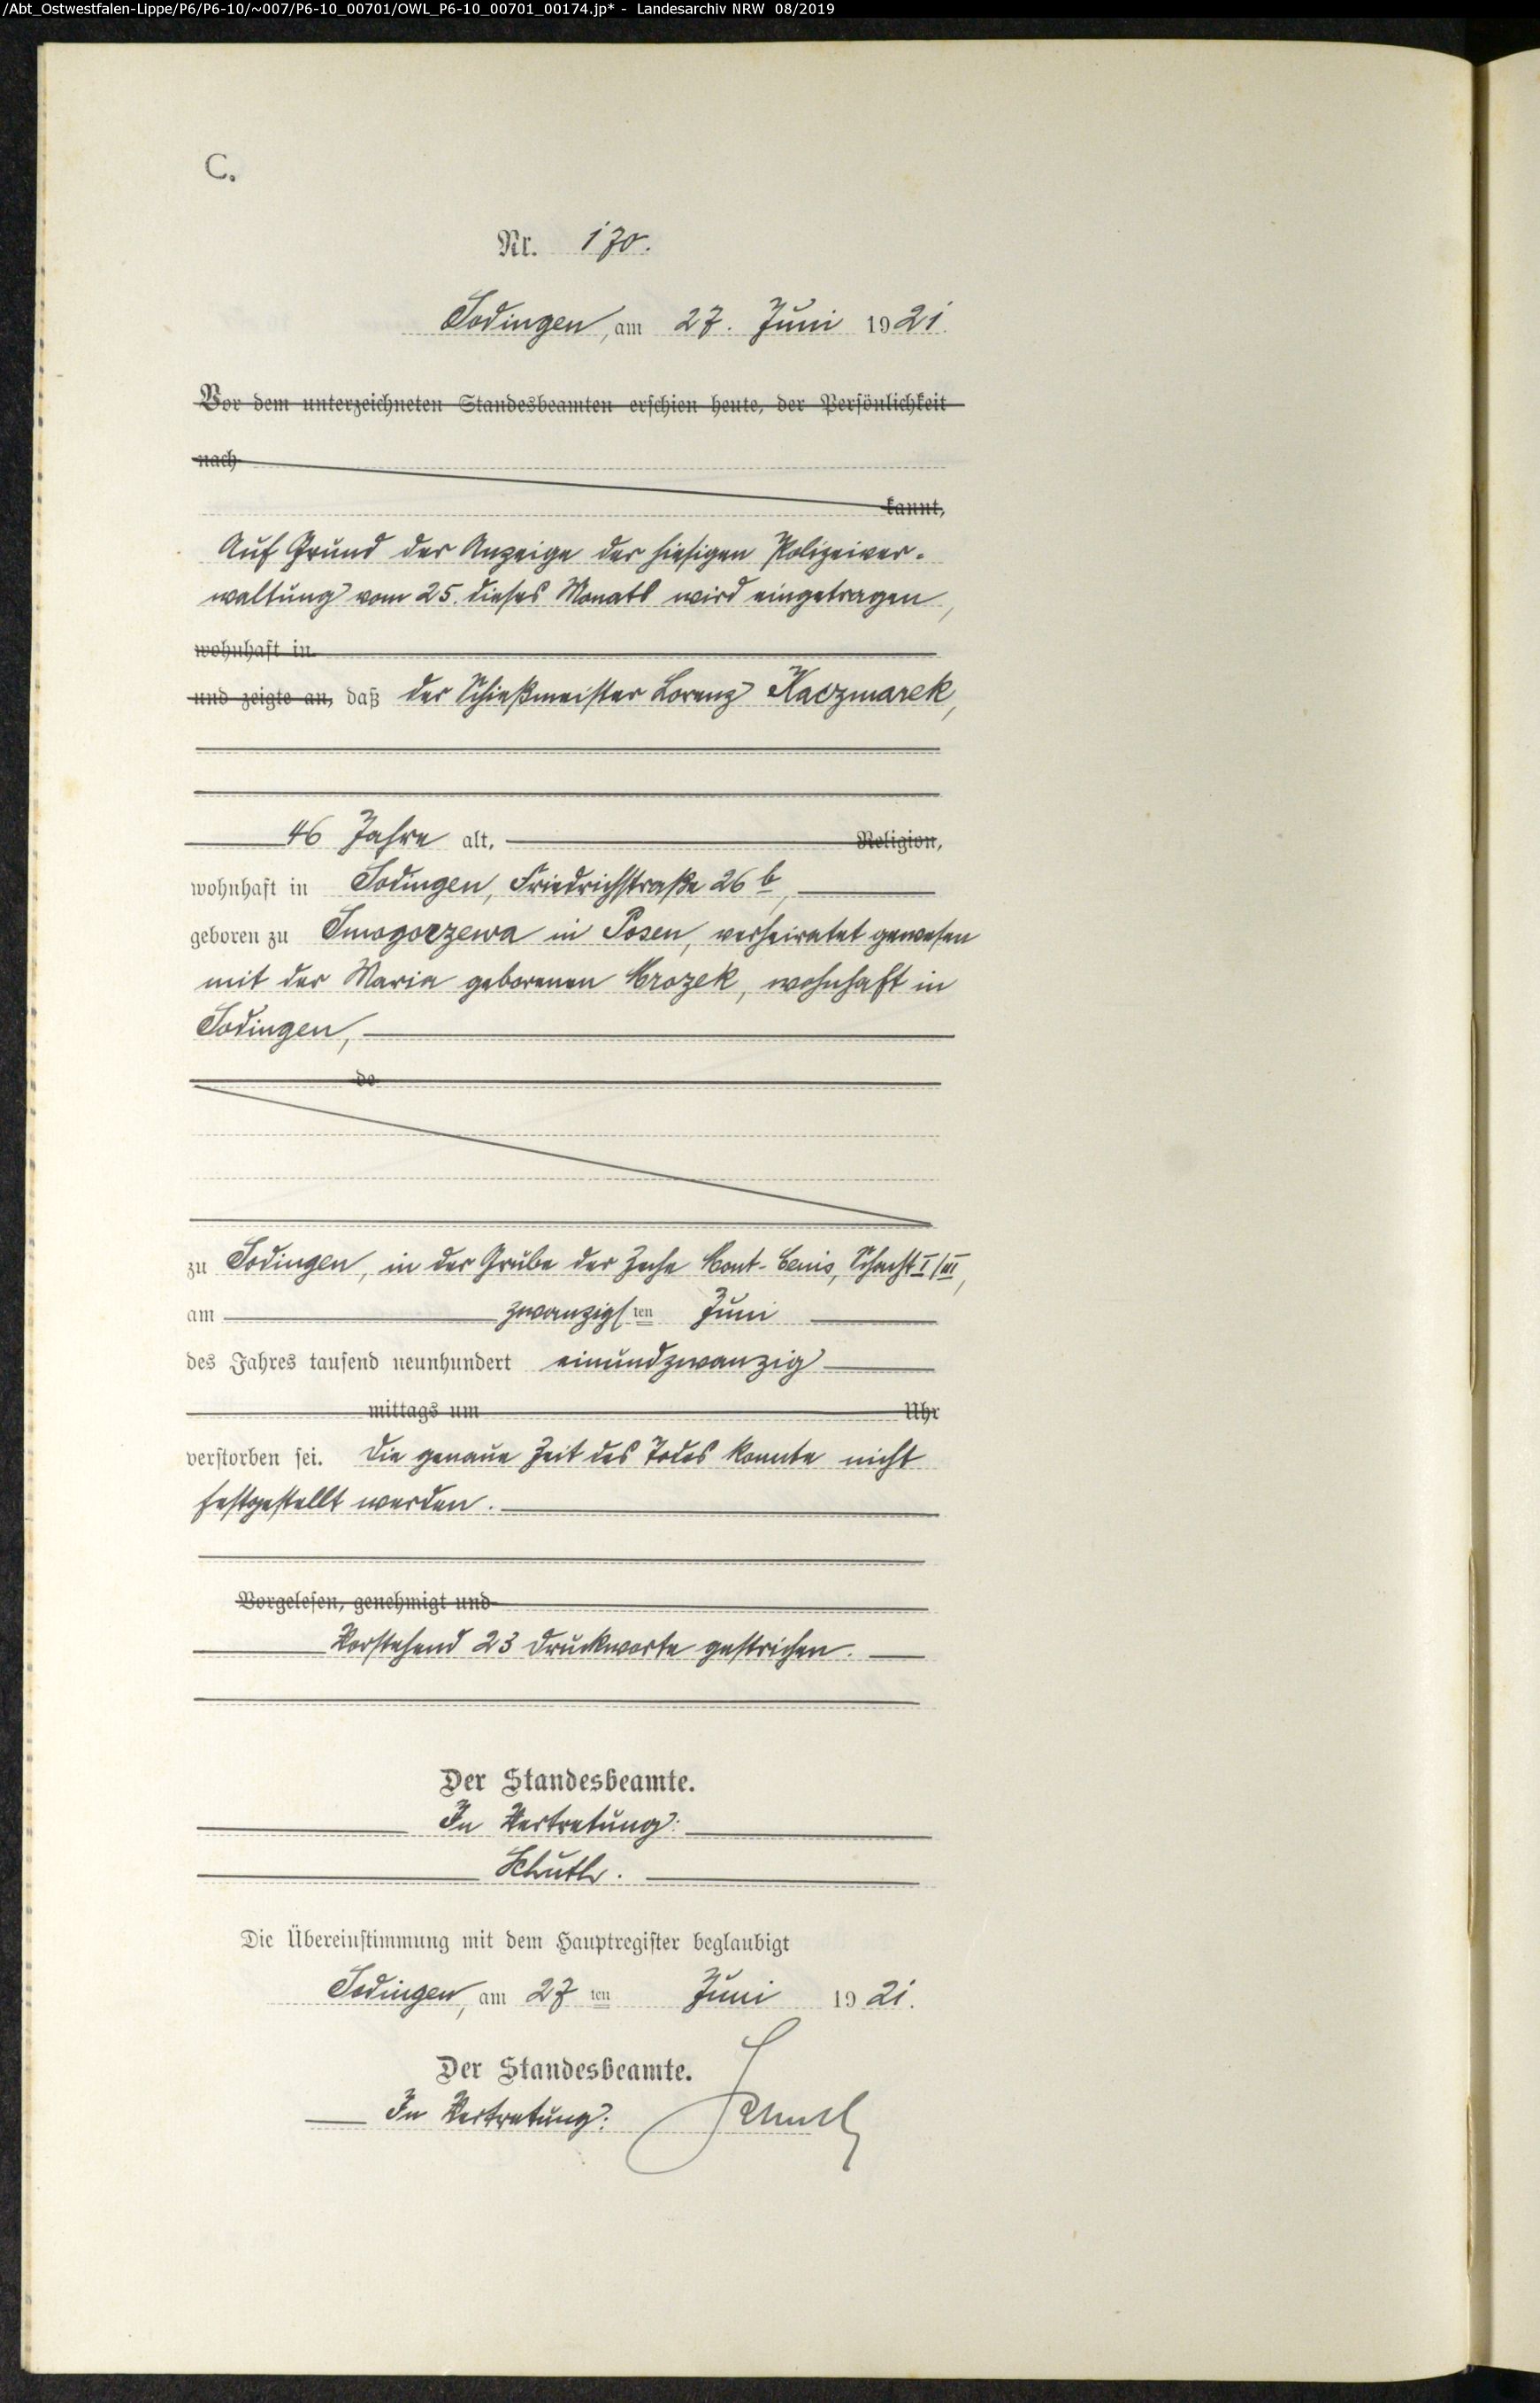 /Abt_Ostwestfalen-Lippe/P6/P6-10/~007/P6-10_00701/OWL_P6-10_00701_00174.jp* - Landesarchiv NRW 08/2019
C.
Nr. 170.
Sodingen, am 27. Juni 1921.
Vor dem unterzeichneten Standesbeamten erschien heute, der Persönlichkeit
nach
kannt,
Auf Grund der Anzeige der hiesigen Polizeiver-
waltung vom 25. dieses Monats wird eingetragen,
wohnhaft in
und zeigte an, daß der Schießmeister Lorenz Kaczmarek,
46 Jahre alt, Religion,
wohnhaft in Sodingen, Friedrichstraße 26 b,
geboren zu Smogorzewa in Posen, verheiratet gewesen
mit der Maria geborenen Mrozek, wohnhaft in
Sodingen,
de
zu Sodingen, in der Grube der Zeche Mont-Cenis, Schacht I/III,
am zwanzigsten Juni
des Jahres tausend neunhundert einundzwanzig
mittags um Uhr
verstorben sei. Die genaue Zeit des Todes konnte nicht
festgestellt werden.
Vorgelesen, genehmigt und
Vorstehend 23 Druckworte gestrichen.
Der Standesbeamte.
In Vertretung:
Die Übereinstimmung mit dem Hauptregister beglaubigt
Sodingen, am 27 ten Juni 1921.
Der Standesbeamte.
In Vertretung: